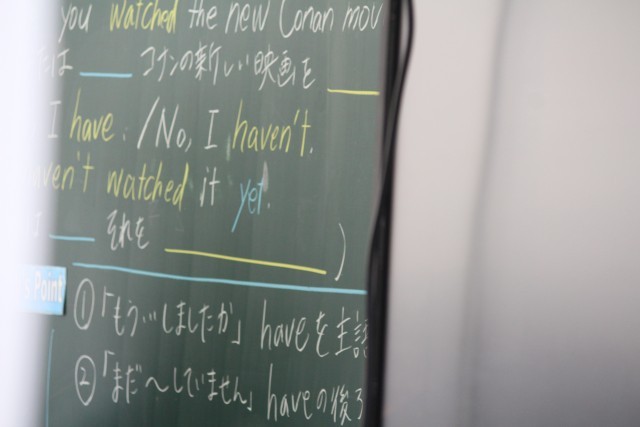 you watched the new Conan mov
は ___ コナンの新しい映画を ___
I have. / No, I haven't.
aven't watched it yet.
___ それを ___ )
Point
① 「もう…しましたか」 haveを主語
② 「まだ〜していません」 haveの後ろ